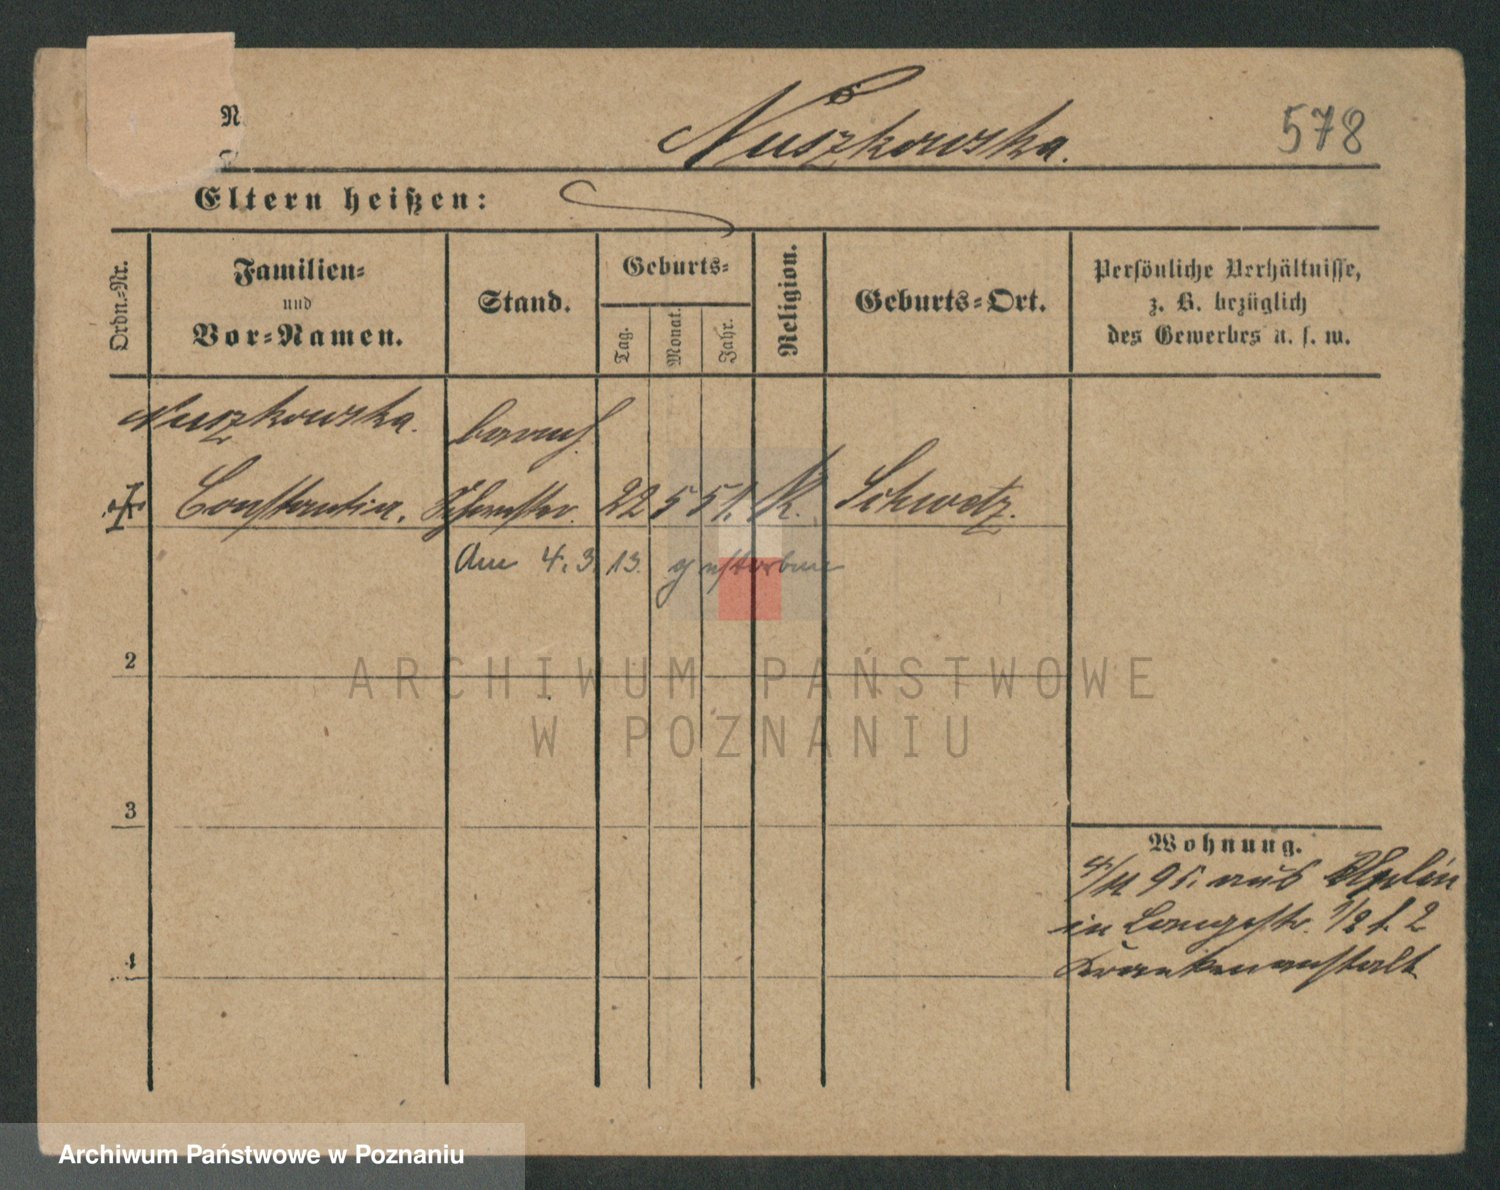 N
Nuszkowska.
578
Eltern heißen:
Ordn.-Nr.
Familien-
und
Vor-Namen.
Stand.
Geburts-
Tag.
Monat.
Jahr.
Religion.
Geburts-Ort.
Persönliche Verhältnisse,
z. B. bezüglich
des Gewerbes u. s. w.
Nuszkowska. barmh.
Constantia. Schwester. 22 5 51. K. Schwetz.
Am 4.3.13. gestorben
2
3
4
Wohnung.
4/11 95. aus
in Langestr. 1/2 f. 2
Krankenanstalt
ARCHIWUM PAŃSTWOWE
W POZNANIU
Archiwum Państwowe w Poznaniu